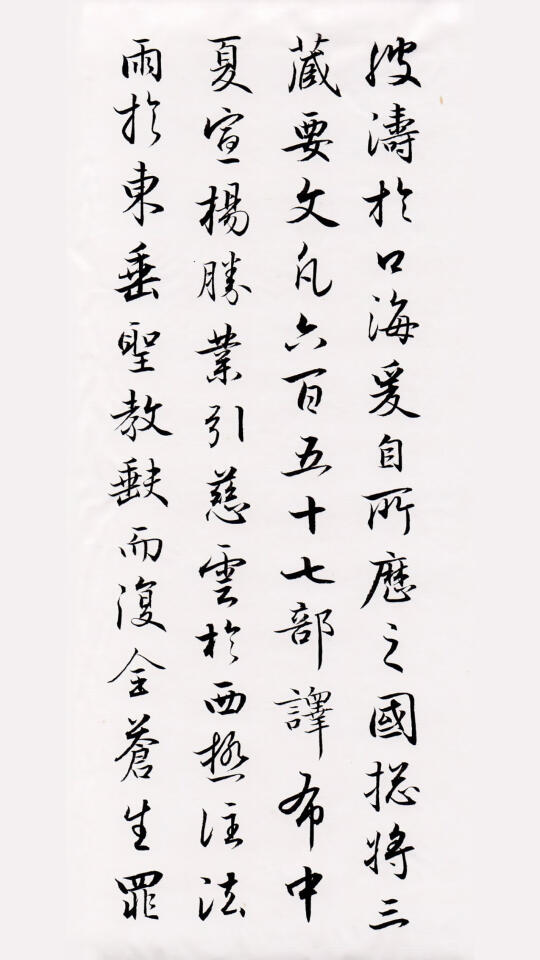 波濤於口海爰自所歷之國揔將三
藏要文凡六百五十七部譯布中
夏宣揚勝業引慈雲於西極注法
雨於東垂聖教缺而復全蒼生罪